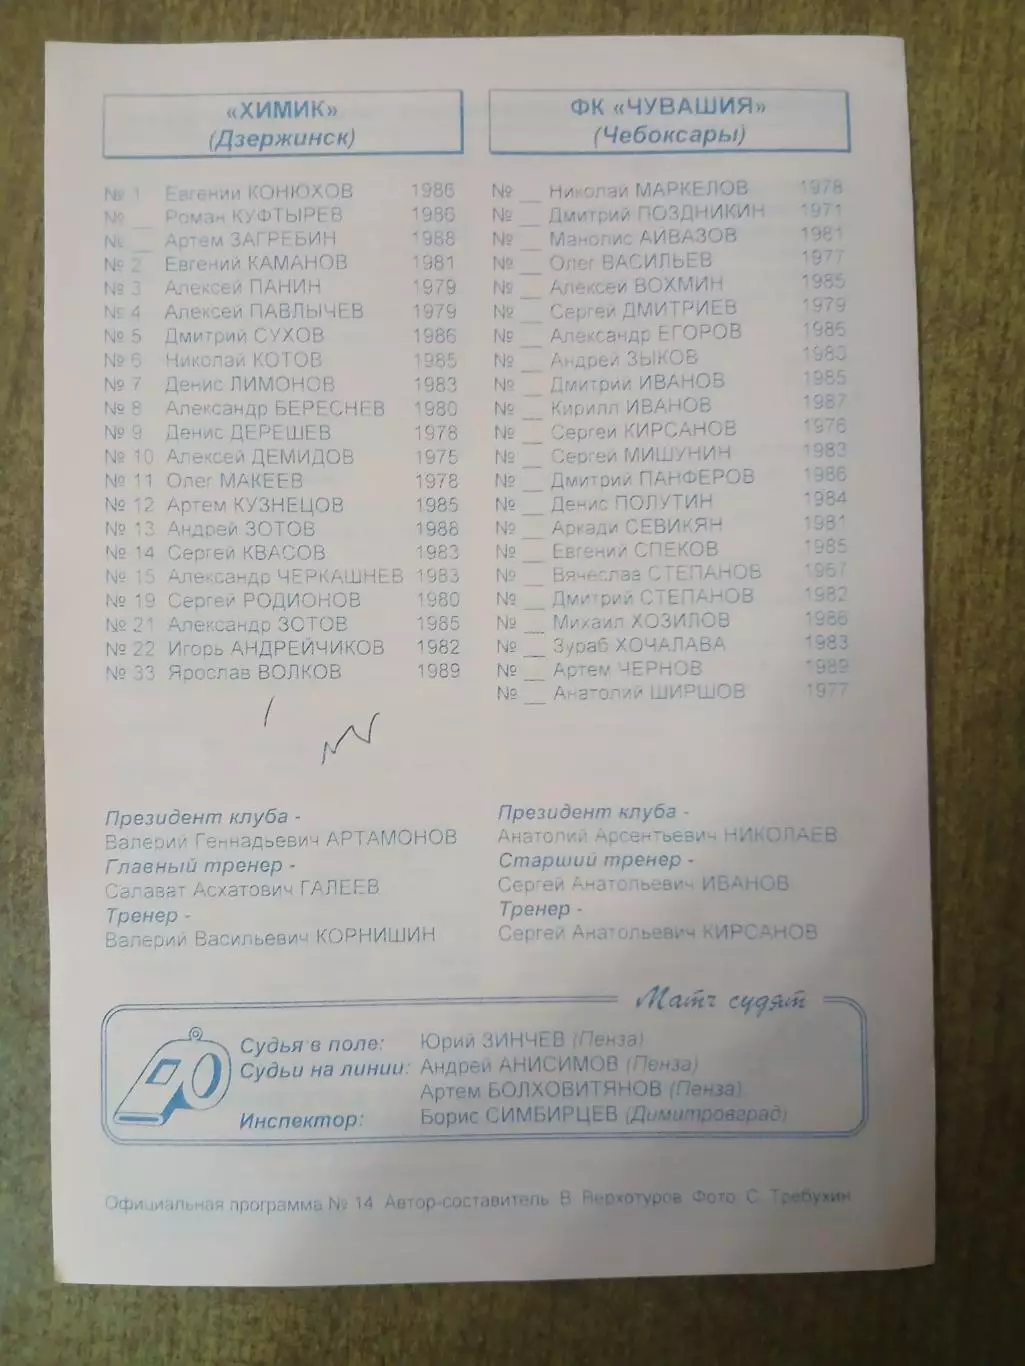 «ХИМИК»
(Дзержинск)
№ 1 Евгений КОНЮХОВ 1986
№ __ Роман КУФТЫРЕВ 1986
№ __ Артем ЗАГРЕБИН 1988
№ 2 Евгений КАМАНОВ 1981
№ 3 Алексей ПАНИН 1979
№ 4 Алексей ПАВЛЫЧЕВ 1979
№ 5 Дмитрий СУХОВ 1986
№ 6 Николай КОТОВ 1985
№ 7 Денис ЛИМОНОВ 1983
№ 8 Александр БЕРЕСНЕВ 1980
№ 9 Денис ДЕРЕШЕВ 1978
№ 10 Алексей ДЕМИДОВ 1975
№ 11 Олег МАКЕЕВ 1978
№ 12 Артем КУЗНЕЦОВ 1985
№ 13 Андрей ЗОТОВ 1988
№ 14 Сергей КВАСОВ 1983
№ 15 Александр ЧЕРКАШНЕВ 1983
№ 19 Сергей РОДИОНОВ 1980
№ 21 Александр ЗОТОВ 1985
№ 22 Игорь АНДРЕЙЧИКОВ 1982
№ 33 Ярослав ВОЛКОВ 1989
Президент клуба -
Валерий Геннадьевич АРТАМОНОВ
Главный тренер -
Салават Асхатович ГАЛЕЕВ
Тренер -
Валерий Васильевич КОРНИШИН
ФК «ЧУВАШИЯ»
(Чебоксары)
№ __ Николай МАРКЕЛОВ 1978
№ __ Дмитрий ПОЗДНИКИН 1971
№ __ Манолис АЙВАЗОВ 1981
№ __ Олег ВАСИЛЬЕВ 1977
№ __ Алексей ВОХМИН 1985
№ __ Сергей ДМИТРИЕВ 1979
№ __ Александр ЕГОРОВ 1985
№ __ Андрей ЗЫКОВ 1983
№ __ Дмитрий ИВАНОВ 1985
№ __ Кирилл ИВАНОВ 1987
№ __ Сергей КИРСАНОВ 1976
№ __ Сергей МИШУНИН 1983
№ __ Дмитрий ПАНФЕРОВ 1986
№ __ Денис ПОЛУТИН 1984
№ __ Аркади СЕВИКЯН 1981
№ __ Евгений СПЕКОВ 1985
№ __ Вячеслав СТЕПАНОВ 1967
№ __ Дмитрий СТЕПАНОВ 1982
№ __ Михаил ХОЗИЛОВ 1986
№ __ Зураб ХОЧАЛАВА 1983
№ __ Артем ЧЕРНОВ 1989
№ __ Анатолий ШИРШОВ 1977
Президент клуба -
Анатолий Арсентьевич НИКОЛАЕВ
Старший тренер -
Сергей Анатольевич ИВАНОВ
Тренер -
Сергей Анатольевич КИРСАНОВ
Матч судят
Судья в поле: Юрий ЗИНЧЕВ (Пенза)
Судьи на линии: Андрей АНИСИМОВ (Пенза)
Артем БОЛХОВИТЯНОВ (Пенза)
Инспектор: Борис СИМБИРЦЕВ (Димитровград)
Официальная программа № 14 Автор-составитель В. Верхотуров Фото С. Требухин